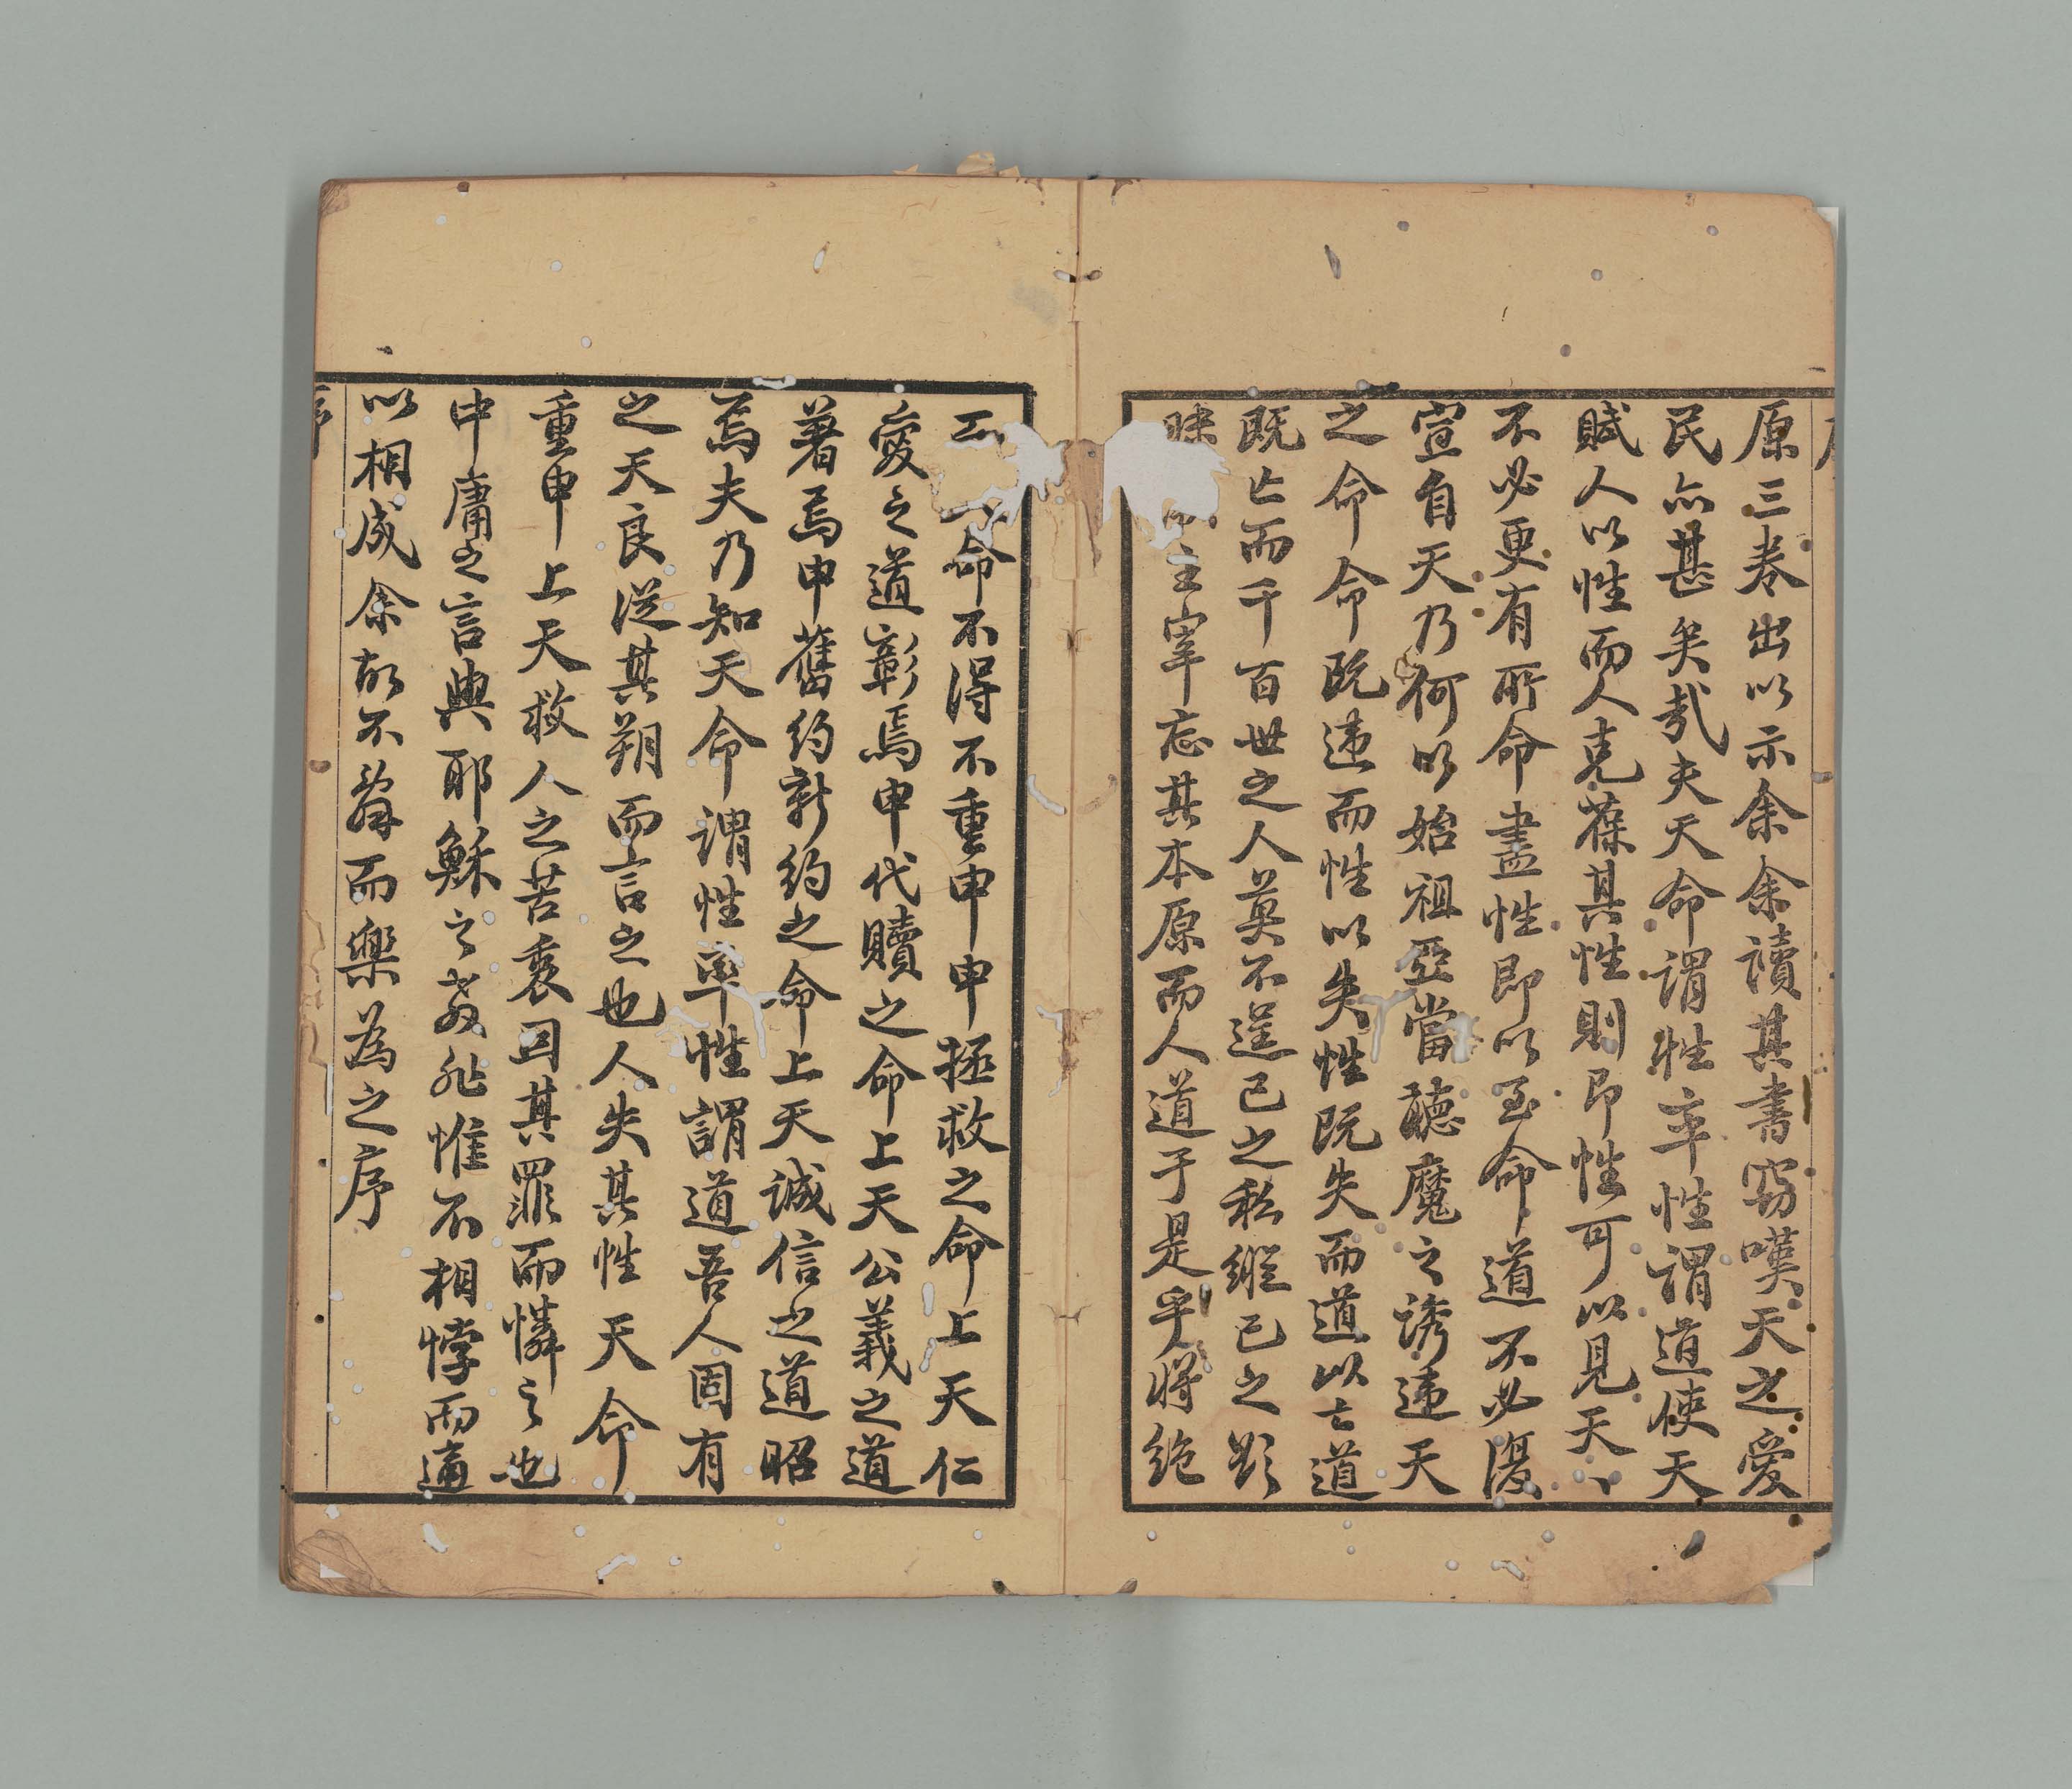 原三卷出以示余余讀其書竊嘆天之愛
民亦甚矣哉夫天命謂性率性謂道使天
賦人以性而人克葆其性則即性可以見天
不必更有所命盡性即以至命道不必復
宣自天乃何以始祖亞當聽魔之誘違天
之命命既違而性以失性既失而道以亡道
既亡而千百世之人莫不逞已之私縱已之欲
昧主宰忘其本原而人道于是乎將絕
命不得不重申申拯救之命上天仁
愛之道彰焉申代贖之命上天公義之道
著焉申舊約新約之命上天誠信之道昭
焉夫乃知天命謂性率性謂道吾人固有
之天良從其朔而言之也人失其性天命
重申上天救人之苦衷因其罪而憐之也
中庸之言與耶穌之教非惟不相悖而適
以相成余故不辭而樂為之序
序